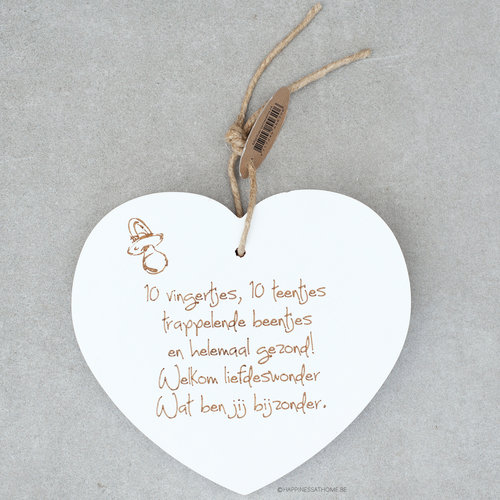 10 vingertjes, 10 teentjes
trappelende beentjes
en helemaal gezond!
Welkom liefdeswonder
Wat ben jij bijzonder.
©HAPPINESSATHOME.BE